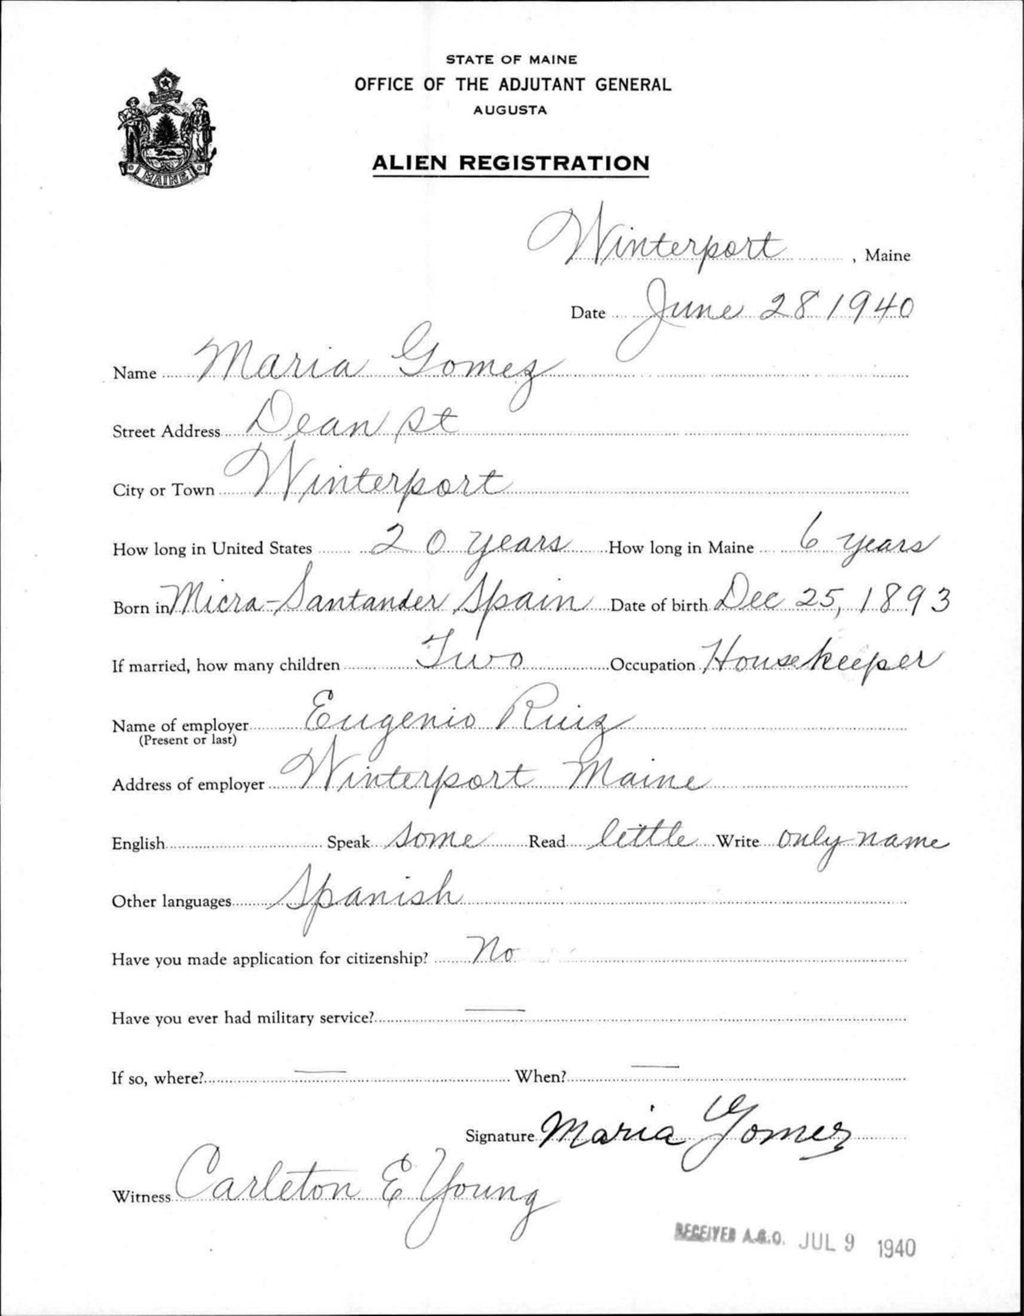 STATE OF MAINE
OFFICE OF THE ADJUTANT GENERAL
AUGUSTA
ALIEN REGISTRATION
MAINE
Winterport, Maine
Date June 28 1940
Name Maria Gomez
Street Address Dean St
City or Town Winterport
How long in United States 20 years How long in Maine 6 years
Born in Micra-Santander Spain Date of birth Dec 25, 1893
If married, how many children Two Occupation Housekeeper
Name of employer Eugenio Ruiz
(Present or last)
Address of employer Winterport Maine
English Speak some Read little Write only name
Other languages Spanish
Have you made application for citizenship? No
Have you ever had military service? —
If so, where? — When? —
Signature Maria Gomez
Witness Carleton E Young
RECEIVED A.G.O. JUL 9 1940